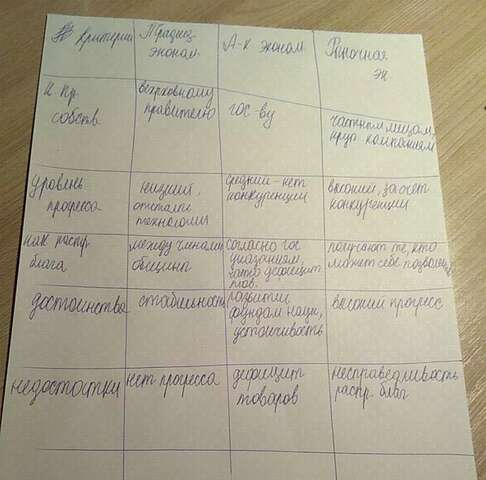 Критерии
Традиц.
эконом.
А-к эконом.
Рыночная
эк.
собств.
верховному
правителю
гос-ву
частным лицам,
круп компаниям
уровень
прогресса
низший,
отсталые
технологии
средний - нет
конкуренции
высший, за счёт
конкуренции
как распр.
блага
между членами
общины
согласно гос
указаниям,
дефицит
тов.
получают те, кто
может себе позволить
достоинства
стабильность
развитии
фундам наук,
устойчивость
высший прогресс
недостатки
нет прогресса
дефицит
товаров
несправедливость
распр. благ